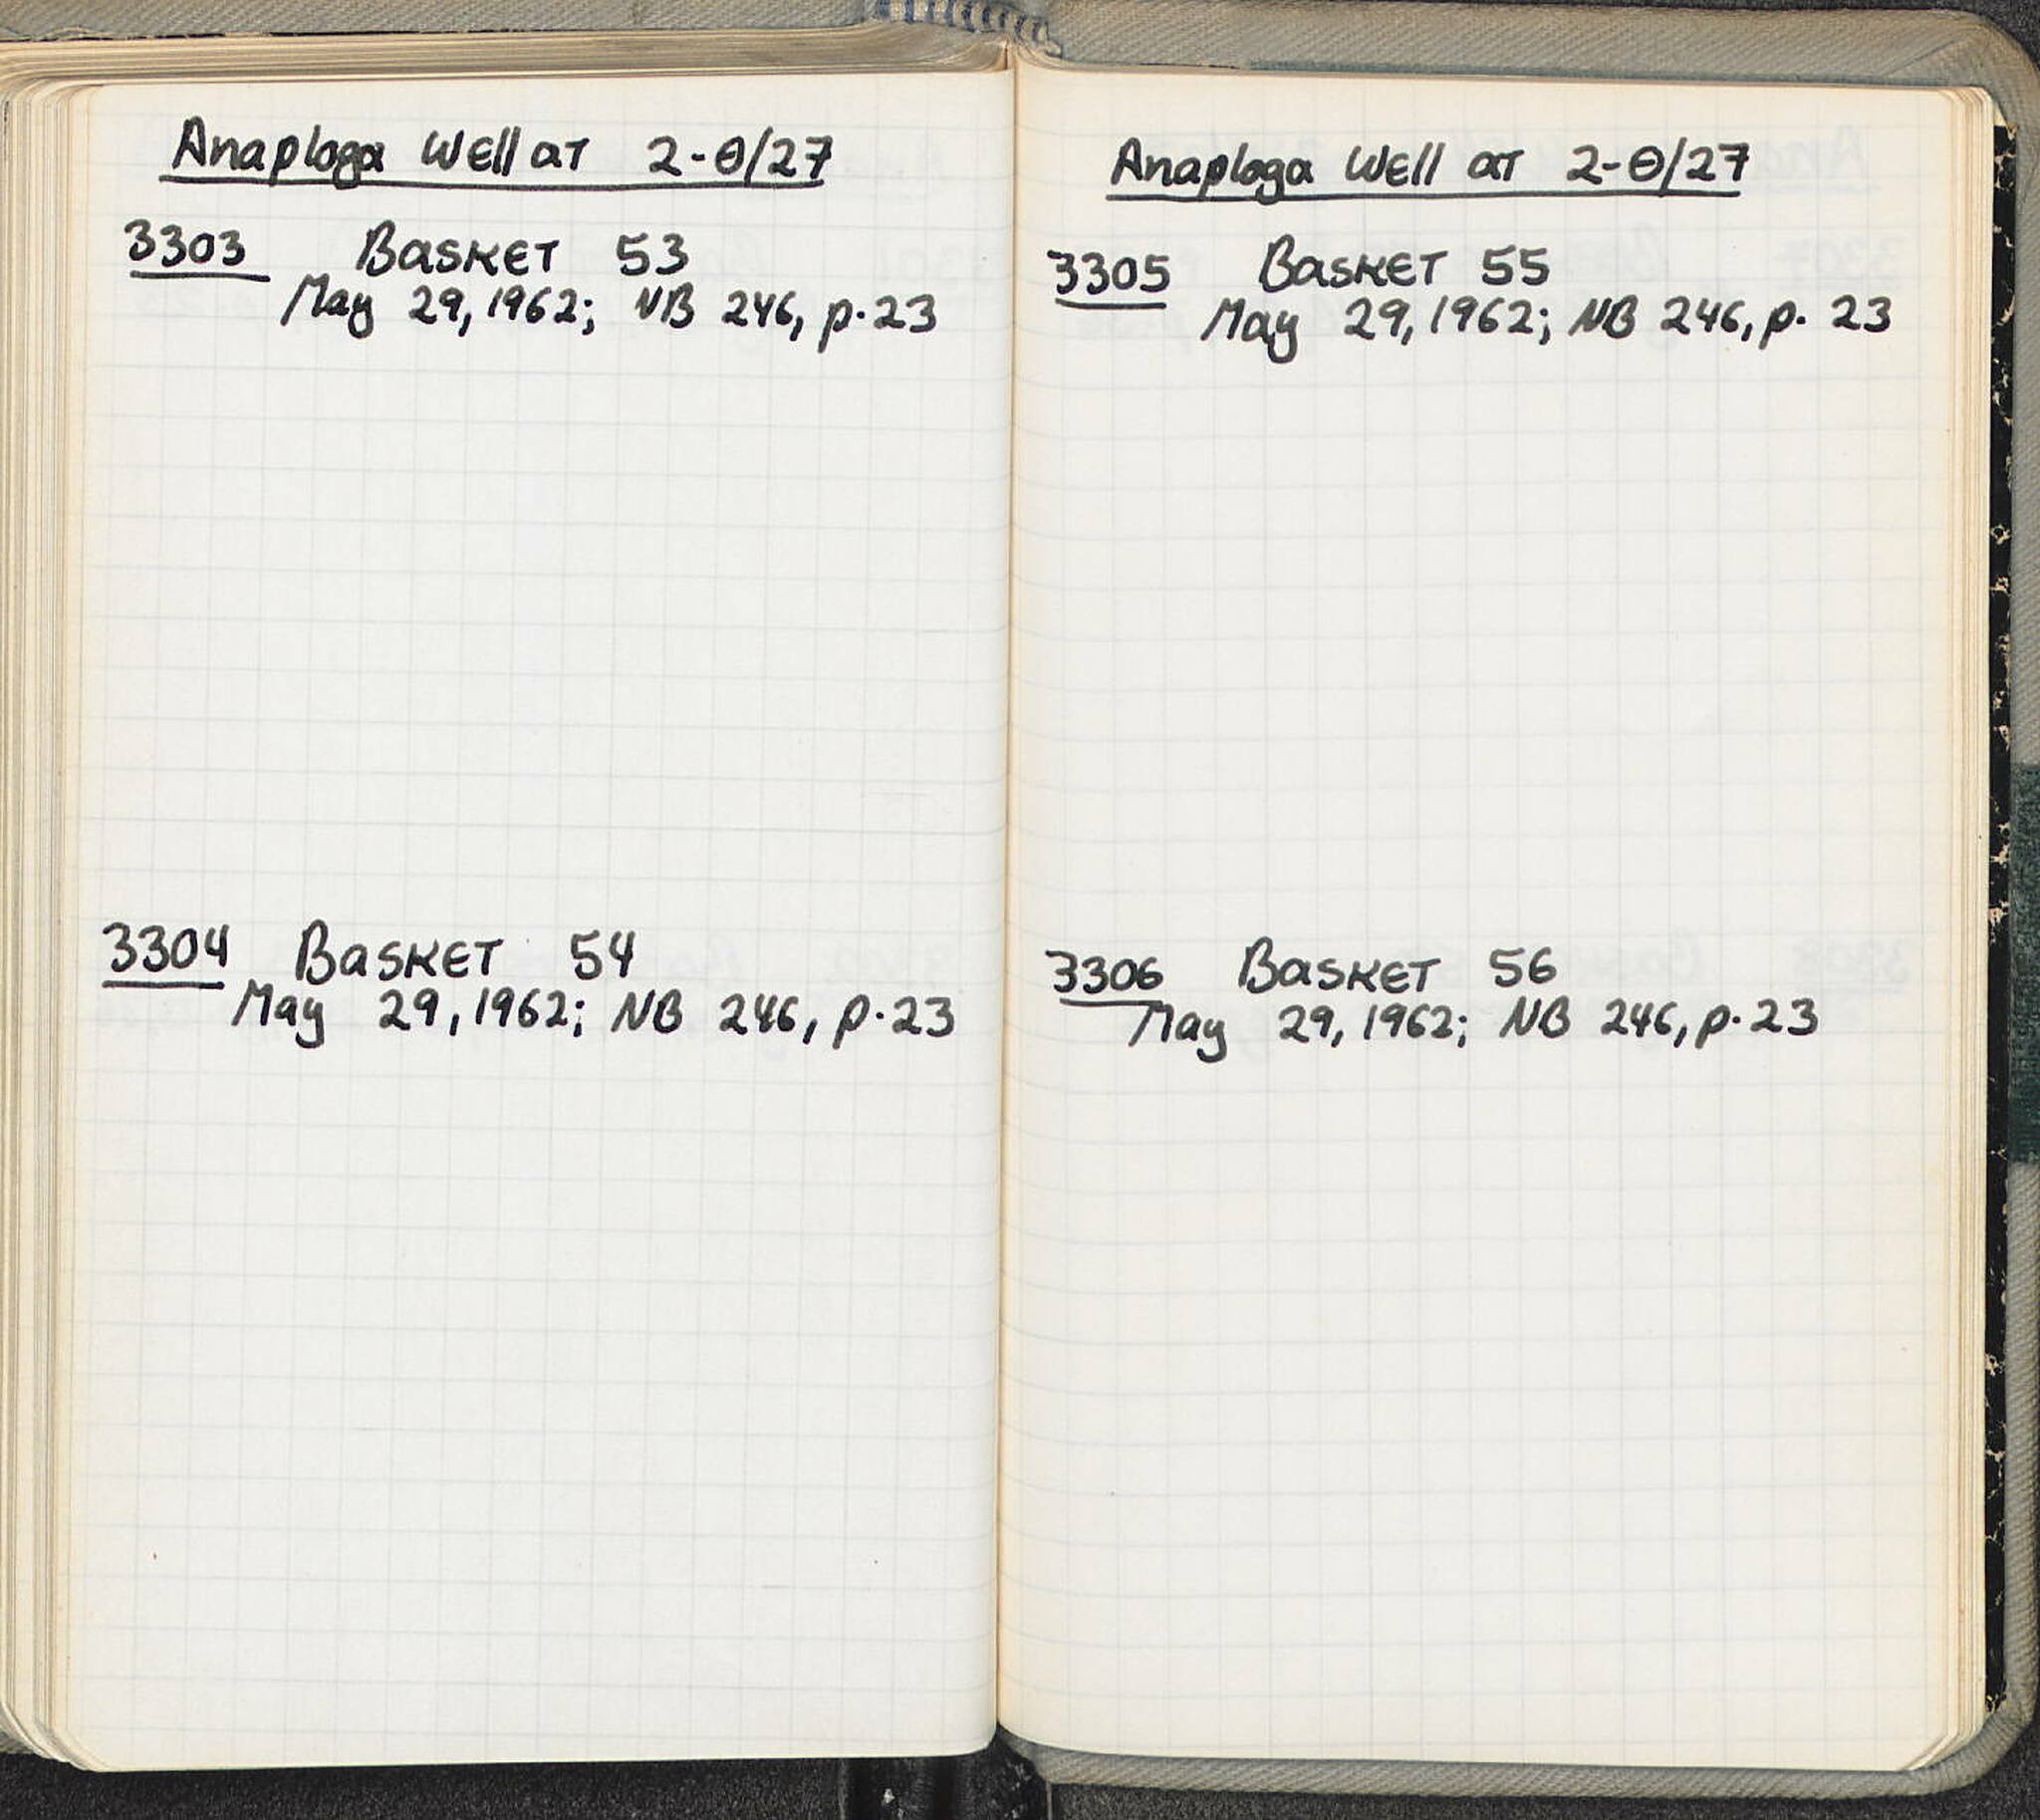 Anaploga Well at 2-Θ/27
3303 Basket 53
May 29, 1962; NB 246, p. 23
3304 Basket 54
May 29, 1962; NB 246, p. 23
Anaploga Well at 2-Θ/27
3305 Basket 55
May 29, 1962; NB 246, p. 23
3306 Basket 56
May 29, 1962; NB 246, p. 23